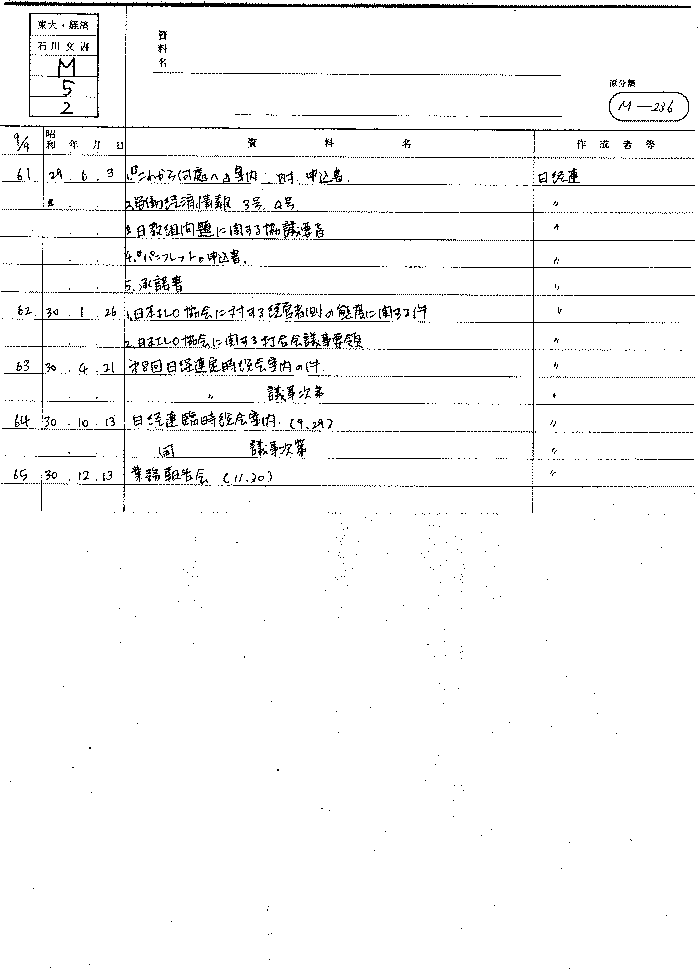 東大・経済
石川文書
M
5
2
資料名
原分類
M-236
9/4 昭和 年 月 日 資料名 作成者等
61 29. 6. 3 1.『これから何處へ』案内 附. 申込書. 日経連
2.労働経済情報 3号. 4号 〃
3.日教組問題に関する協議要旨 〃
4.『パンフレット』申込書. 〃
5.承諾書 〃
62 30. 1. 26 1.日本ILO協会に対する経営者側の態度に関する件 〃
2.日本ILO協会に関する打合会議事要領 〃
63 30. 4. 21 第8回日経連定時総会案内の件. 〃
〃 議事次第 〃
64 30. 10. 13 日経連臨時総会案内. (9.29) 〃
同 議事次第 〃
65 30. 12. 13 業務報告会 (11.30) 〃